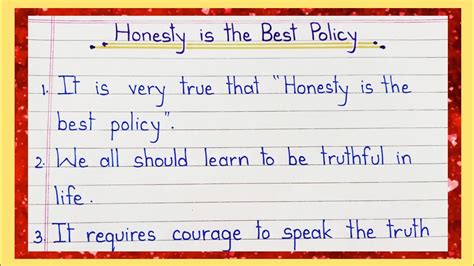 Honesty is the Best Policy
1. It is very true that "Honesty is the
best policy".
2. We all should learn to be truthful in
life.
3. It requires courage to speak the truth